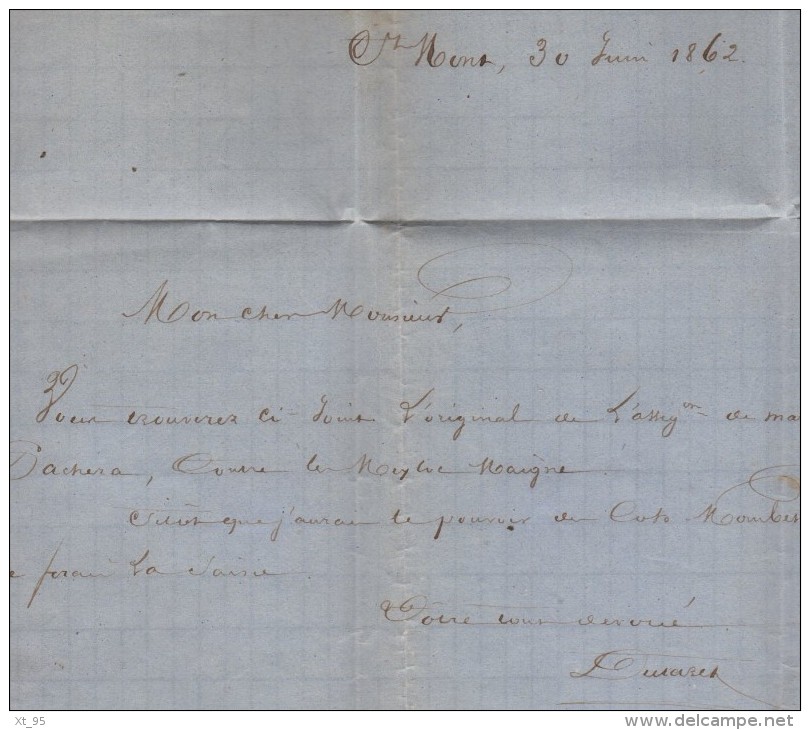 St Mont, 30 Juin 1862.
Mon cher Monsieur,
Vous trouverez ci-Joint L'original de L'assig.on de
Pachera, Contre les Maigné.
Sitôt que j'aurai le pouvoir de
ferai la Saisie
Votre tout dévoué
Xt_95
www.delcampe.net